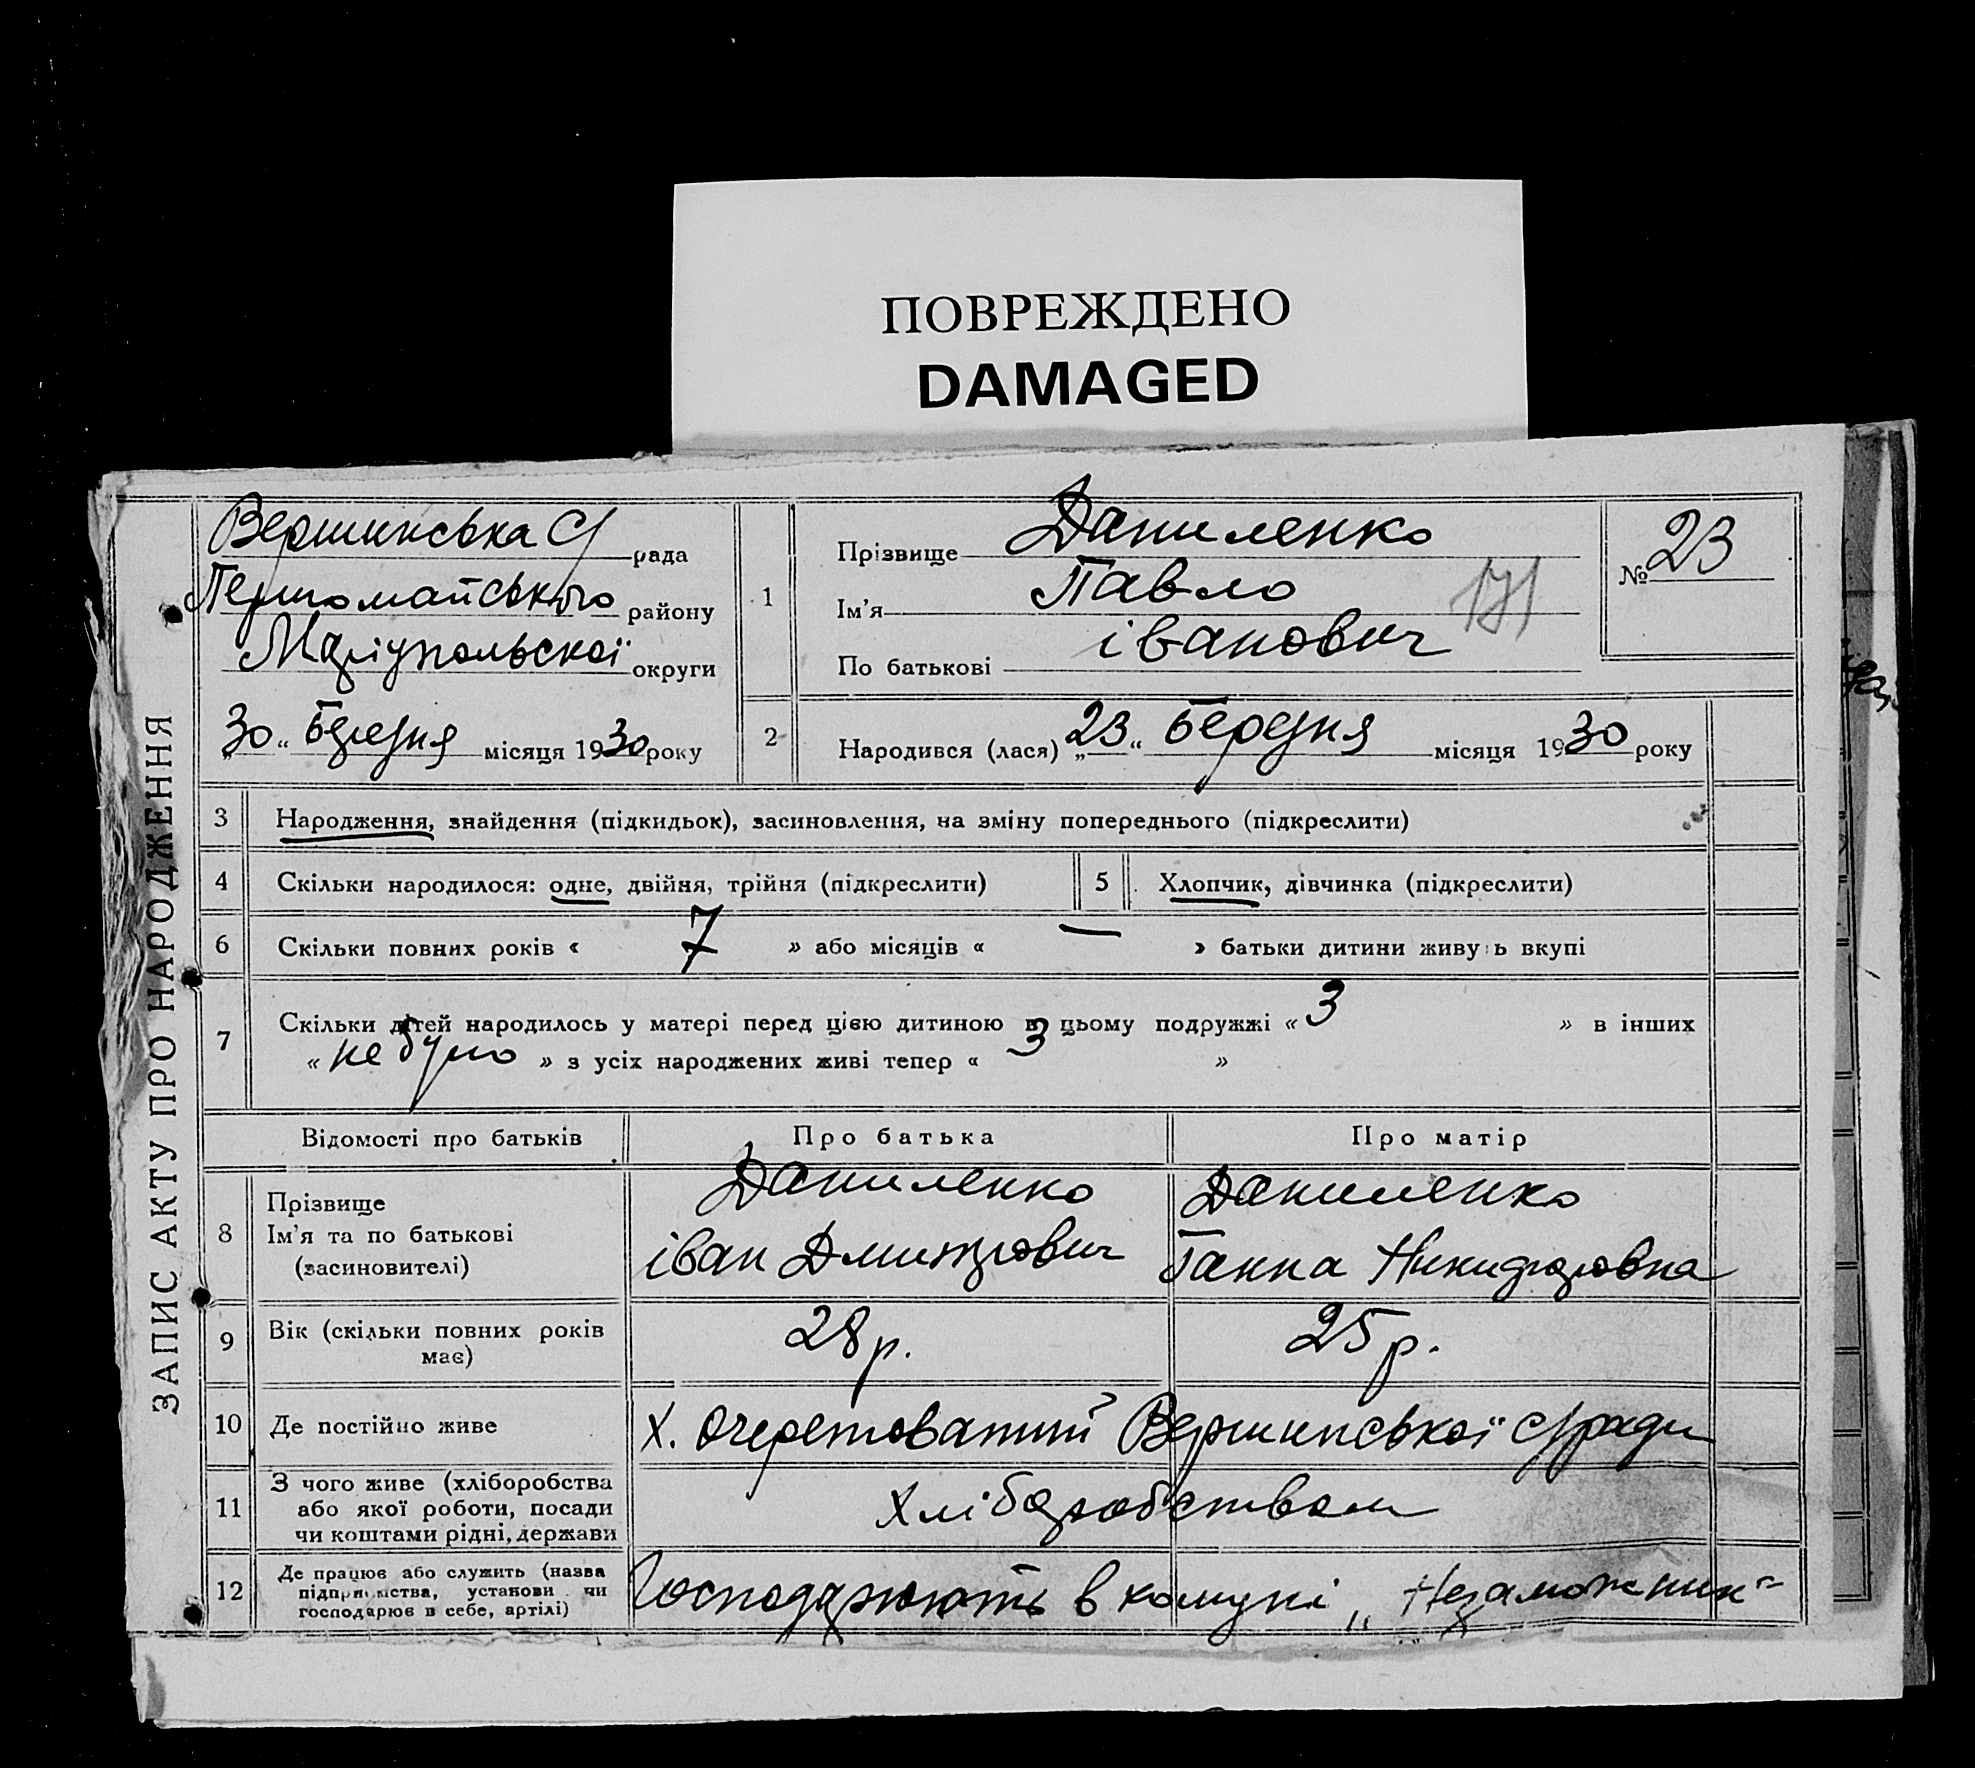 ПОВРЕЖДЕНО
DAMAGED
ЗАПИС АКТУ ПРО НАРОДЖЕННЯ
Вершинська С/ рада
Першомайського району
Маріупольскої округи
„30“ Березня місяця 1930 року
1
Прізвище Даниленко
Ім’я Павло
По батькові іванович
171
№ 23
2
Народився (лася) „23“ Березня місяця 1930 року
3 Народження, знайдення (підкидьок), засиновлення, на зміну попереднього (підкреслити)
4 Скільки народилося: одне, двійня, трійня (підкреслити) 5 Хлопчик, дівчинка (підкреслити)
6 Скільки повних років « 7 » або місяців « — » батьки дитини живуть вкупі
7 Скільки дітей народилось у матері перед цією дитиною в цьому подружжі « 3 » в інших
« не було » з усіх народжених живі тепер « 3 »
Відомості про батьків Про батька Про матір
8 Прізвище Даниленко Даниленко
Ім’я та по батькові іван Дмитрович Ганна Никифоровна
(засиновителі)
9 Вік (скільки повних років має) 28 р. 25 р.
10 Де постійно живе х. Очеретоватий Вершинської с/ради
11 З чого живе (хліборобства
або якої роботи, посади
чи коштами рідні, держави
Хліборобством
12 Де працює або служить (назва
підприємства, установи чи
господарює в себе, артілі)
Господарюють в комуні „Незаможник“